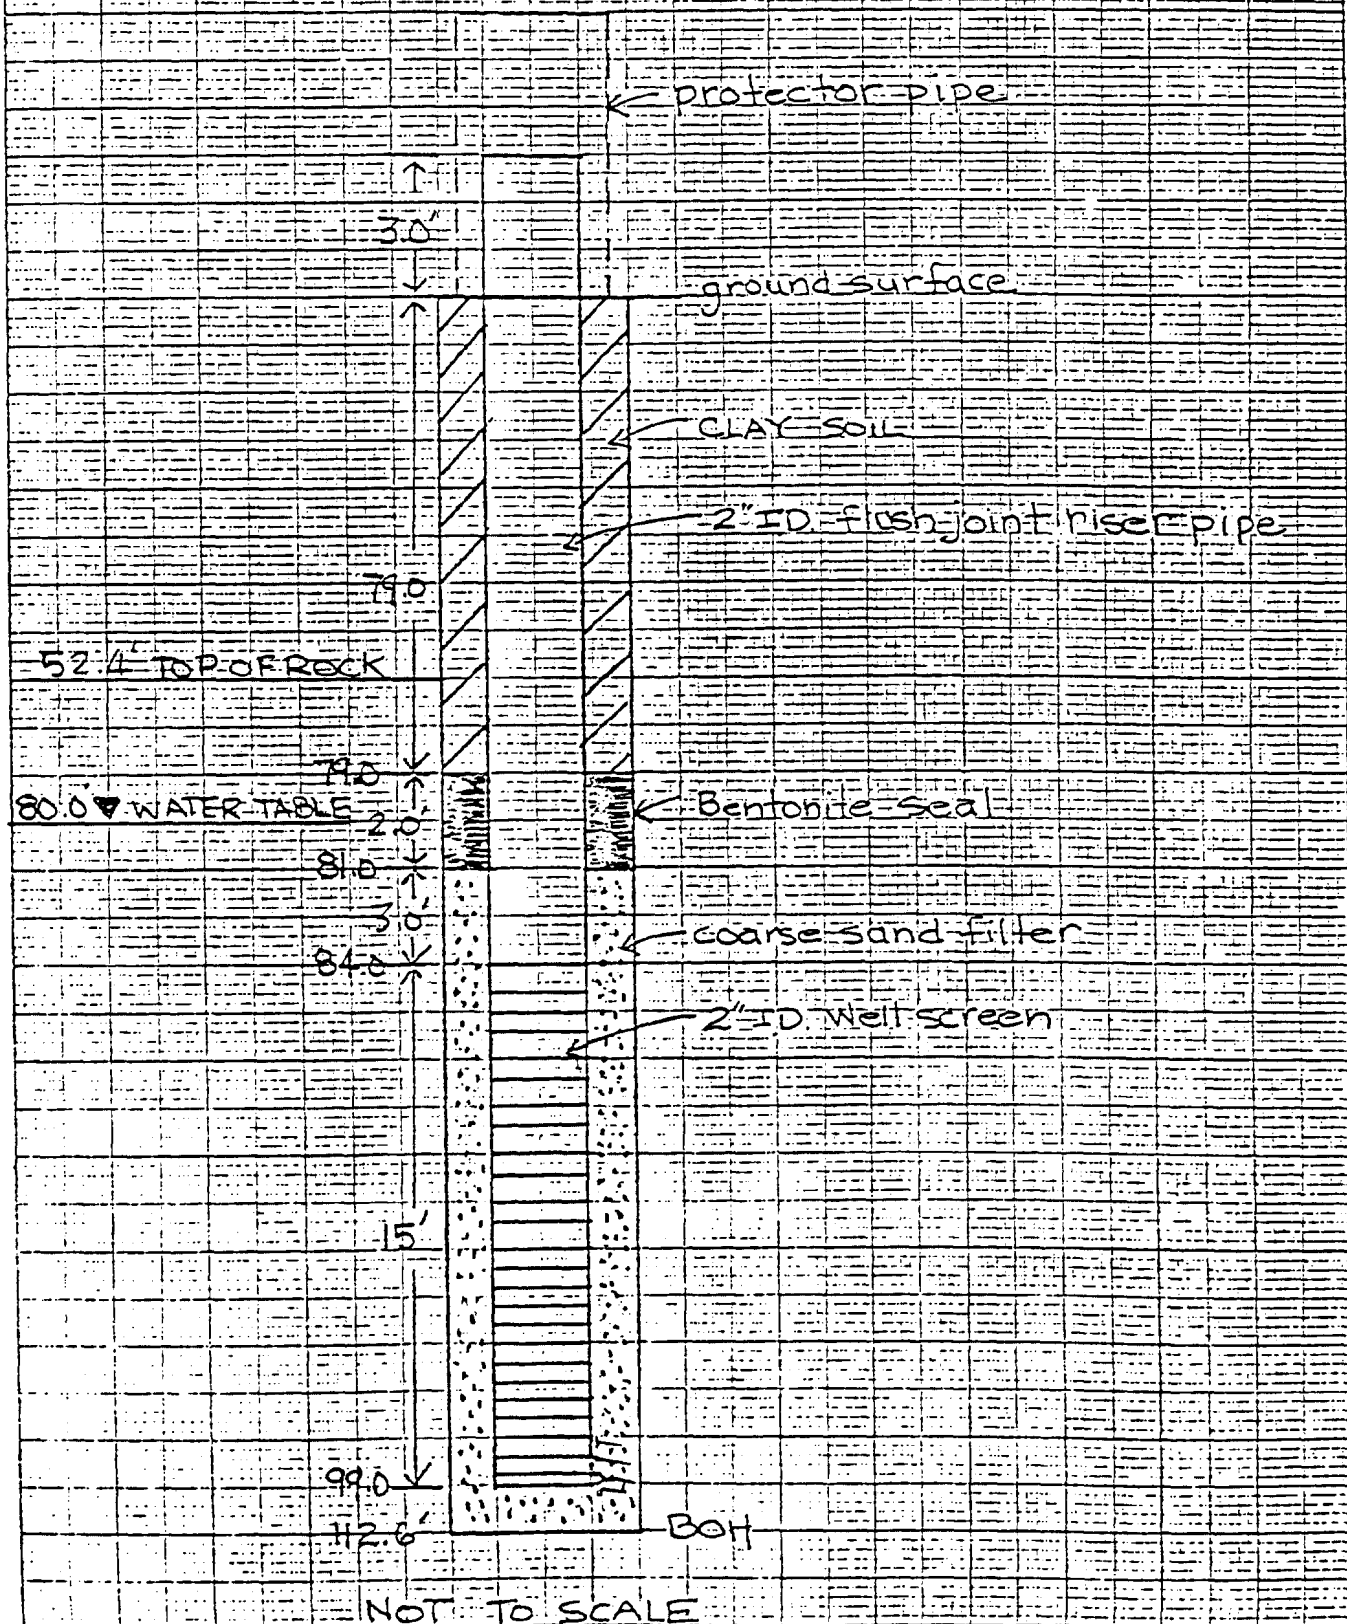 protector pipe
3.0'
ground surface
CLAY SOIL
2" ID flush joint riser pipe
79.0
52.4' TOP OF ROCK
79.0
80.0 WATER TABLE
2.0'
Bentonite seal
81.0
3.0'
coarse sand filter
84.0
2" ID Well screen
15'
99.0
112.6'
BOH
NOT TO SCALE